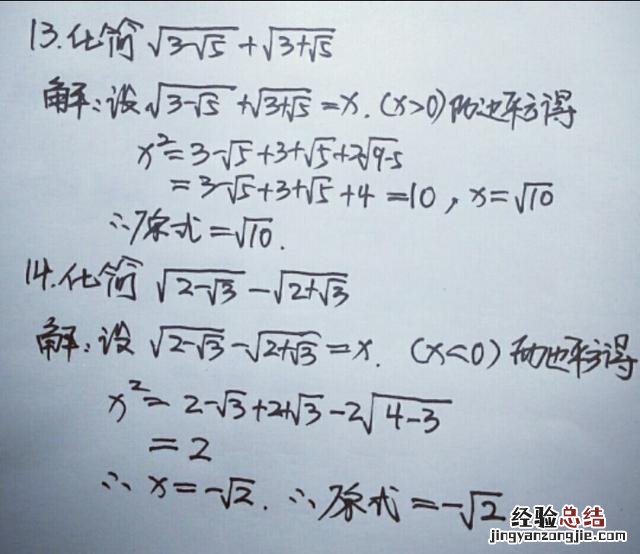 13.化简 √(3-√5) + √(3+√5)
解:设 √(3-√5) + √(3+√5) = x. (x>0) 两边平方得
x² = 3-√5+3+√5+2√(9-5)
= 3-√5+3+√5+4 = 10, x=√10
∴原式=√10.
14.化简 √(2-√3) - √(2+√3)
解:设 √(2-√3) - √(2+√3) = x. (x<0) 两边平方得
x² = 2-√3+2+√3-2√(4-3)
= 2
∴ x=-√2. ∴原式=-√2
经验总结
jingyanzongjie.com